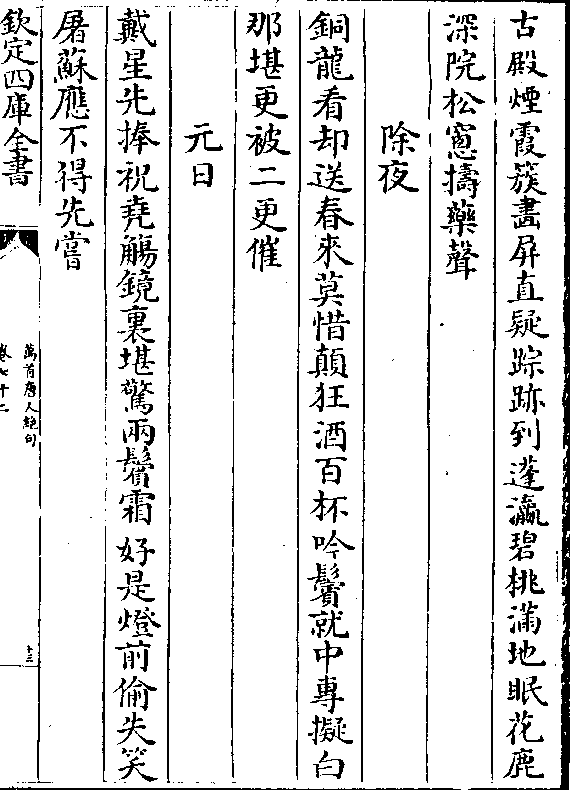 古殿煙霞簇畵屏直疑踪跡到蓬瀛碧桃滿地眠花鹿
深院松窻擣藥聲
除夜
銅龍看却送春來莫惜顛狂酒百杯吟鬢就中專擬白
那堪更被二更催
元日
戴星先捧祝堯觴鏡裏堪驚兩鬢霜好是燈前偷失笑
屠蘇應不得先嘗
欽定四庫全書
萬首唐人絶句
卷七十二
十三